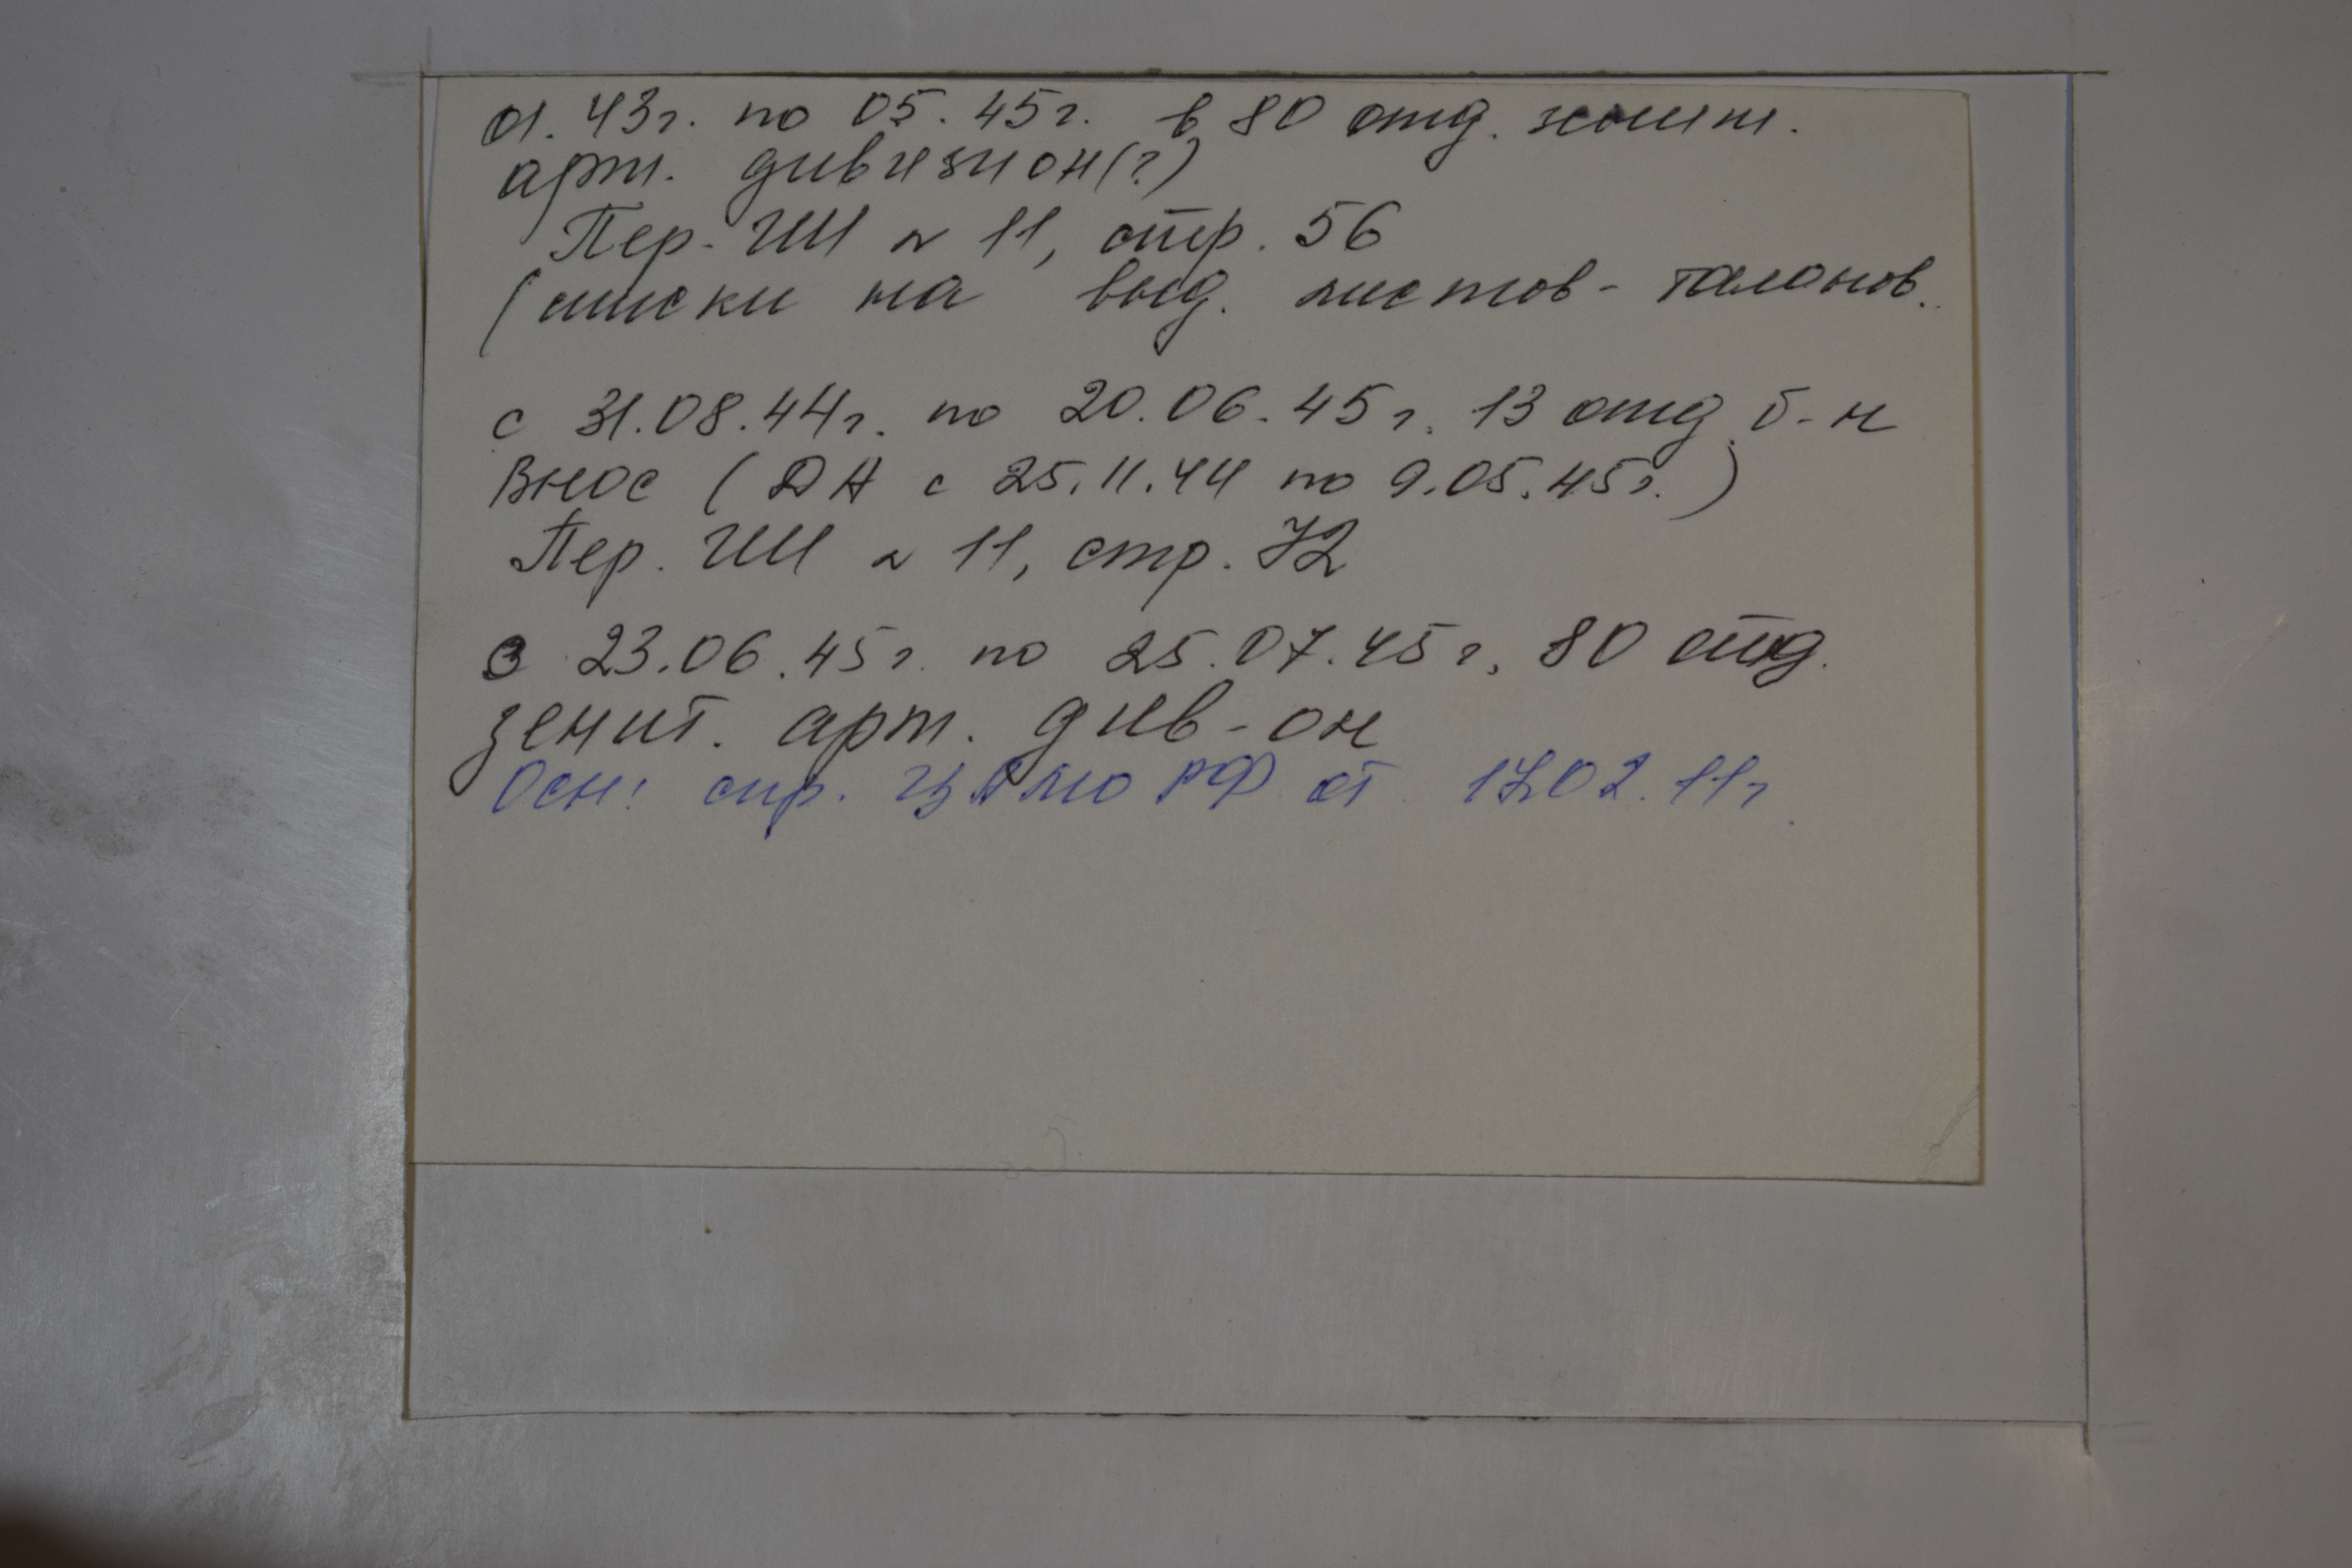 01.43г. по 05.45г. в 80 отд. зенит.
арт. дивизион(?)
Пер. ГШ № 11, стр. 56
(списки на выд. листов-талонов.
с 31.08.44г. по 20.06.45г. 13 отд. б-н
ВНОС (ДА с 25.11.44 по 9.05.45г.)
Пер. ГШ № 11, стр. 72
с 23.06.45г. по 25.07.45г. 80 отд.
зенит. арт. див-он
Осн: спр. ЦАМО РФ от 17.02.11г.